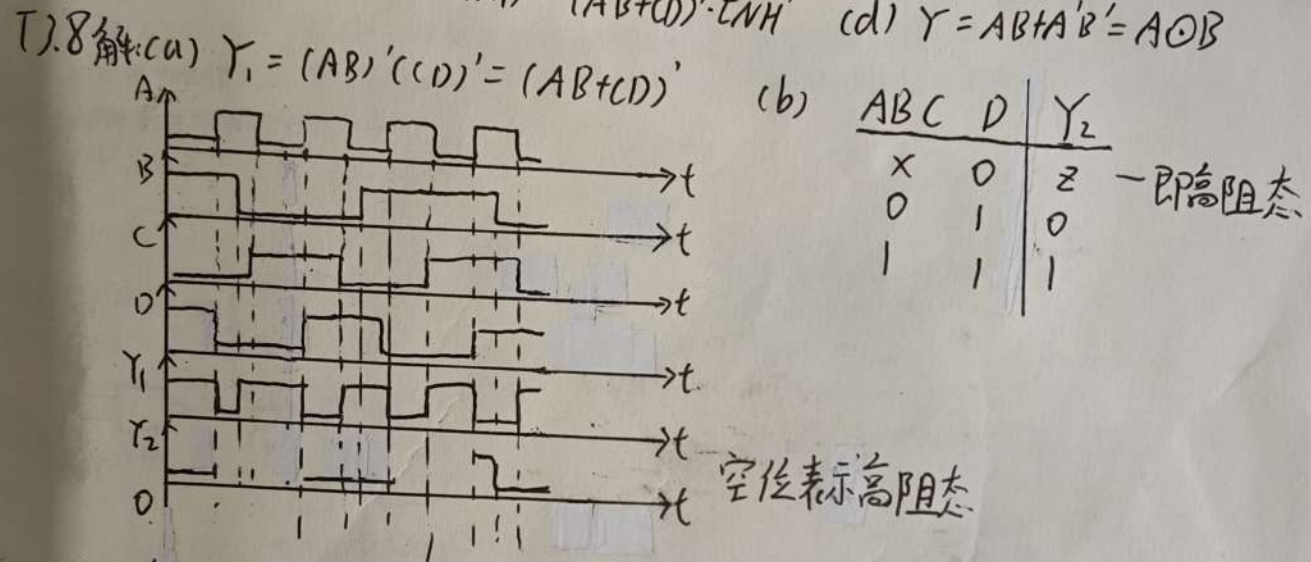 (AB+CD)'·INH' (d) Y = AB+A'B' = A⊙B
T3.8解:(a) Y₁ = (AB)'(CD)' = (AB+CD)'
(b) ABC D Y₂
X 0 Z —即高阻态
0 1 0
1 1 1
A
B t
C t
D t
Y₁ t
Y₂ t
0 t
空位表示高阻态